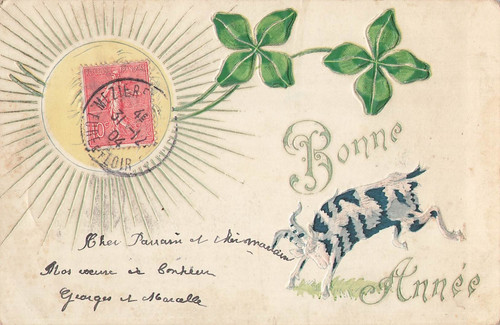 MEZIERE
31-12
04
LOIR
10
Bonne
Année
Cher Parrain et chère marraine
Nos vœux de bonheur
Georges et Marcelle